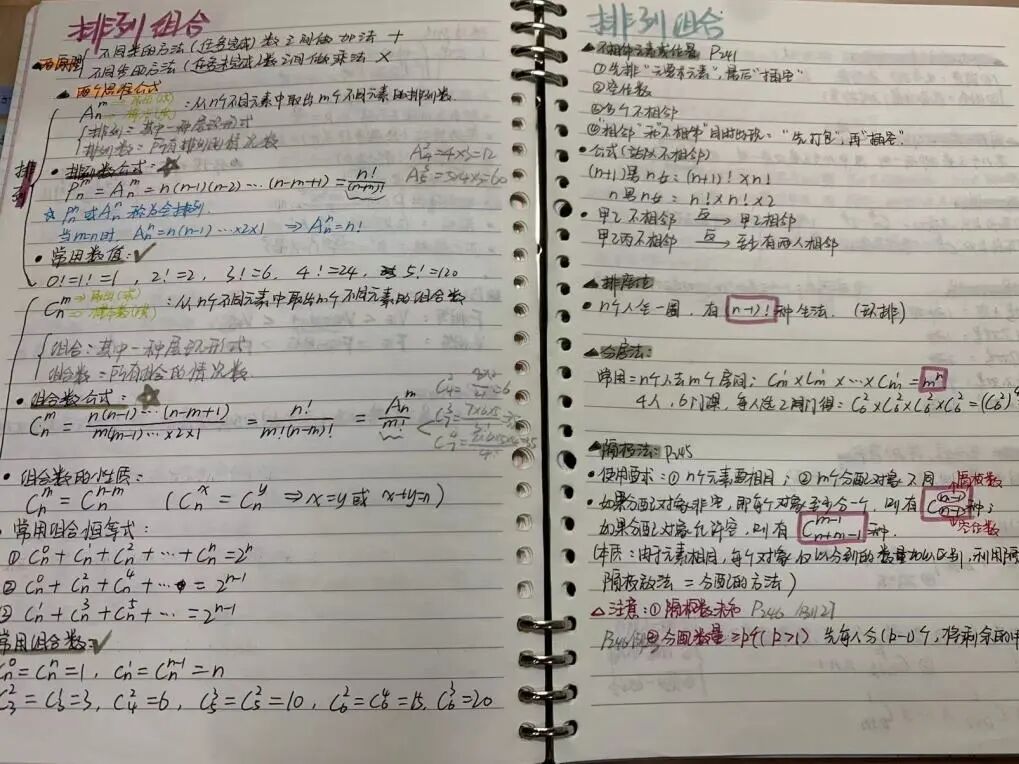 排列组合
两原则 不同类的方法(任务完成)数之间做加法 +
不同步的方法(任务未完成)数之间做乘法 ×
▲两个思维公式
Aₙᵐ :从n个不同元素中取出m个不同元素的排列数.
排列=其中一种展现形式
排列数=所有排列的情况数
A₄²=4×3=12
A₅³=5×4×3=60
排列
• 排列数公式:☆
Pₙᵐ=Aₙᵐ=n(n-1)(n-2)…(n-m+1)=n!/(n-m)!
☆ Pₙⁿ或Aₙⁿ称为全排列.
当m=n时 Aₙⁿ=n(n-1)…×2×1 ⇒ Aₙⁿ=n!
• 常用数值:✓
0!=1!=1, 2!=2, 3!=6, 4!=24, 5!=120
Cₙᵐ :从n个不同元素中取出m个不同元素的组合数
组合:其中一种展现形式
组合数=所有组合的情况数.
• 组合数公式:☆
Cₙᵐ=n(n-1)…(n-m+1)/m(m-1)…×2×1=n!/m!(n-m)!=Aₙᵐ/m!
• 组合数的性质:
Cₙᵐ=Cₙⁿ⁻ᵐ (Cₙˣ=Cₙʸ ⇒x=y或 x+y=n)
常用组合恒等式:
① Cₙ⁰+Cₙ¹+Cₙ²+…+Cₙⁿ=2ⁿ
② Cₙ⁰+Cₙ²+Cₙ⁴+…=2ⁿ⁻¹
③ Cₙ¹+Cₙ³+Cₙ⁵+…=2ⁿ⁻¹
常用组合数:✓
Cₙ⁰=Cₙⁿ=1, Cₙ¹=Cₙⁿ⁻¹=n
C₃²=C₃¹=3, C₄²=6, C₅³=C₅²=10, C₆²=C₆⁴=15, C₆³=20
排列组合
▲不相邻元素 P241
①先排"无要求元素",最后"插空"
②空位数
③多个不相邻
④"相邻"和"不相邻"同时出现:"先打包",再"插空".
• 公式(站队不相邻)
(n+1)男n女:(n+1)!×n!
n男n女:n!×n!×2
• 甲乙不相邻 反→ 甲乙相邻
甲乙丙不相邻 反→ 至少有两人相邻
▲排座位
• n个人坐一圈,有(n-1)!种坐法.(环排)
▲分房法:
常用=n个人去m个房间:Cₘ¹×Cₘ¹×…×Cₘ¹=mⁿ
4人,6门课,每人选2门得:C₆²×C₆²×C₆²×C₆²=(C₆²)⁴
▲隔板法:P245
• 使用要求:①n个元素要相同;②m个分配对象不同
隔板数
• 如果分配对象非空,即每个对象至少分一个,则有Cₙ₋₁ᵐ⁻¹种;
空位数
如果分配对象允许空,则有Cₙ₊ₘ₋₁ᵐ⁻¹种.
(本质:由于元素相同,每个对象仅以分到的数量加以区别,利用隔
隔板放法=分配的方法)
△注意:①隔板数未称 P246
②分配数量≥p个(p>1) 先每人分(p-1)个,将剩余的